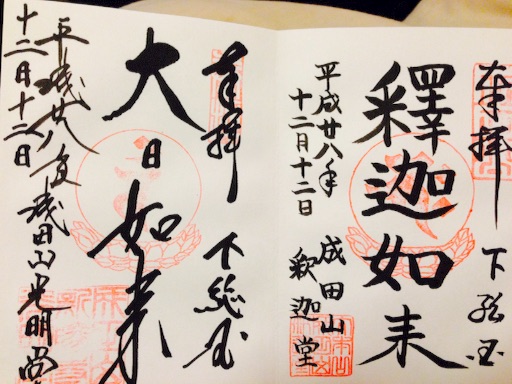 奉拝 下総国
釋迦如来
平成廿八年 成田山
十二月十二日 釈迦堂
奉拝 下総国
大日如来
平成廿八年 成田山光明堂
十二月十二日